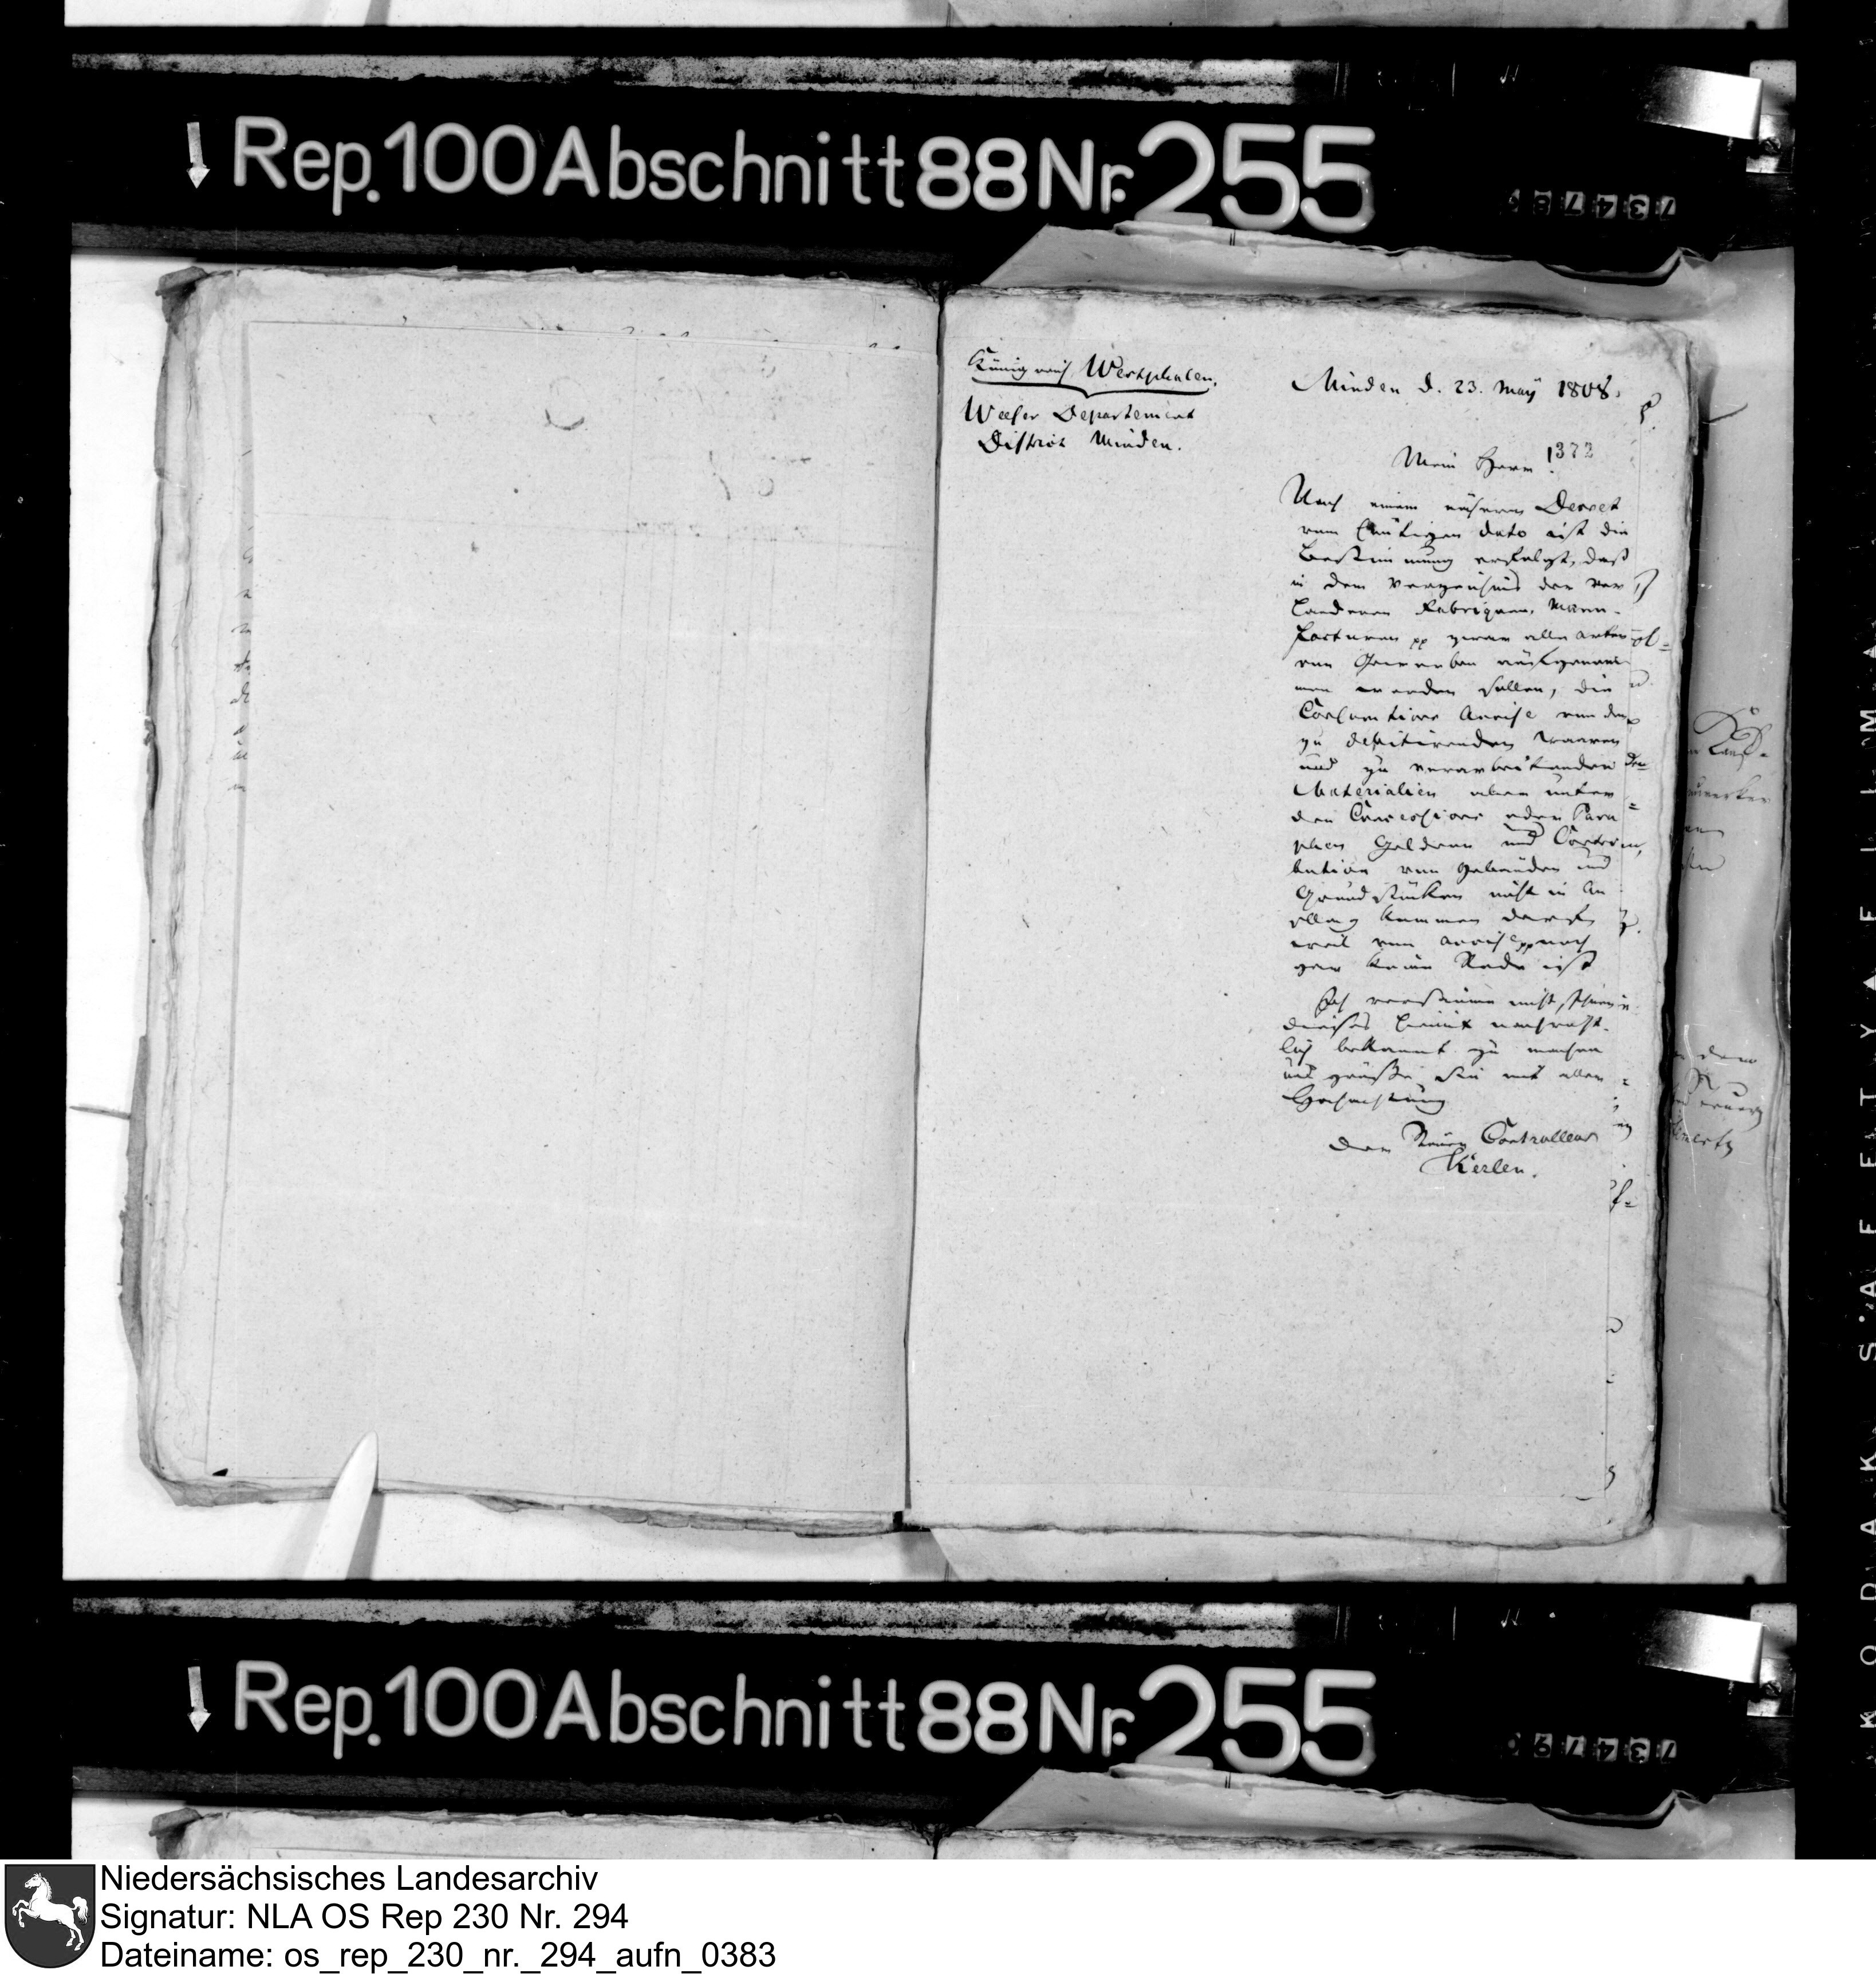 Rep. 100 Abschnitt 88 Nr. 255
Königreich Westphalen.
Weeser Departement
District Minden.
Minden d. 23. May 1808.
372
Mein Herr!
Nach einem näheren Decret
vom heutigen dato ist die
Bestimmung erfolgt, daß
in dem Verzeichnis der vor
handenen Fabriquen, Manu-
facturen pp zwar alle Arten
von Gewerben aufgenom
men werden sollen, die
Consumtions Accise von den
zu debitirenden Waaren
und zu verarbeitenden
Materialien aber unter
den Concessions oder Para
phen Geldern und Contri
bution von Gebäuden und
Grundstücken nicht in An
schlag kommen darf,
weil von Accise pp noch
gar keine Rede ist
Ich versäume nicht, Ihnen
dieses hiemit nachricht-
lich bekannt zu machen
und grüße Sie mit aller
Hochachtung
Der Controlleur
Kerlen.
Rep. 100 Abschnitt 88 Nr. 255
Niedersächsisches Landesarchiv
Signatur: NLA OS Rep 230 Nr. 294
Dateiname: os_rep_230_nr._294_aufn_0383